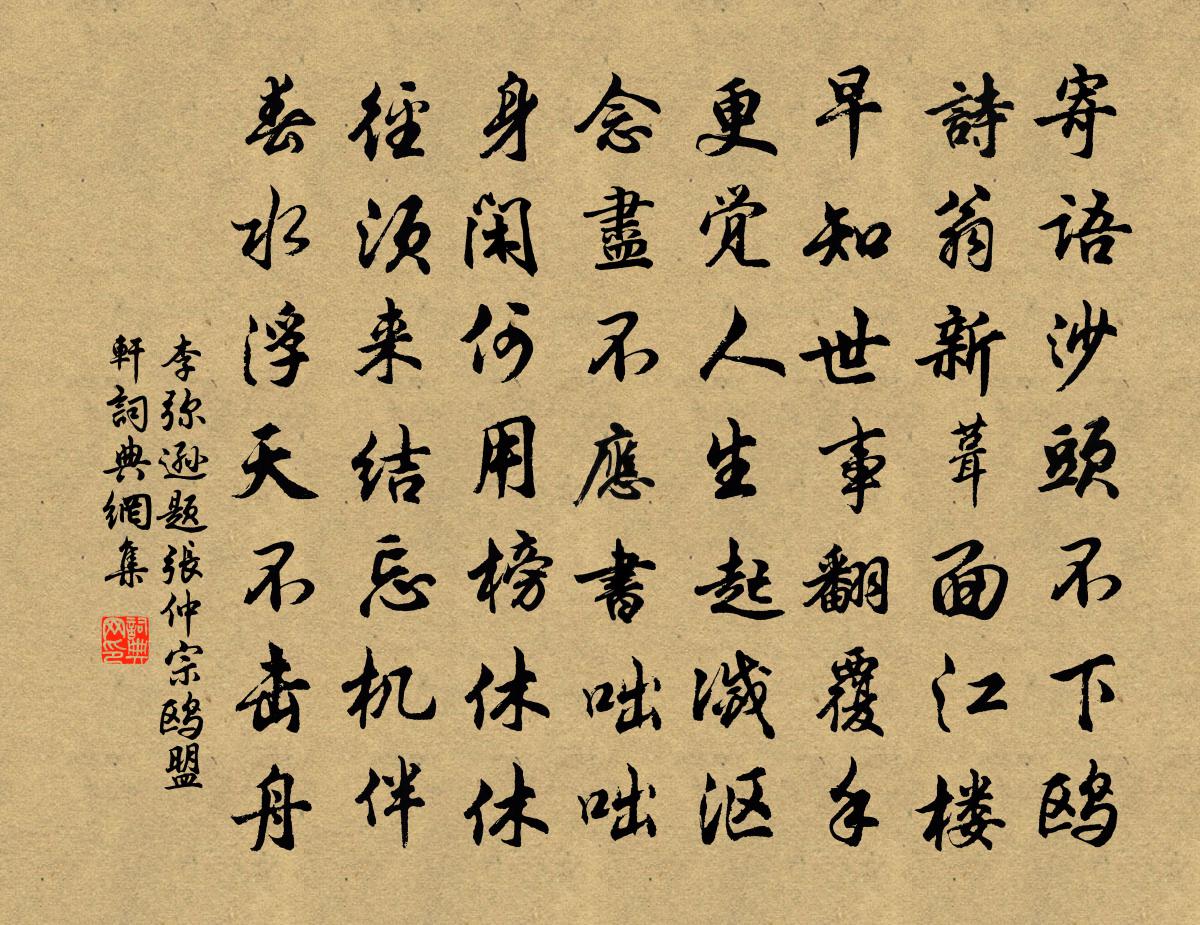 寄語沙頭不下鸥
詩翁新葺面江楼
早知世事翻覆手
更觉人生起滅沤
念盡不應書咄咄
身闲何用榜休休
徑须来结忘机伴
春水浮天不击舟
李弥遜题張仲宗鸥盟
軒詞典網集
詞典网印